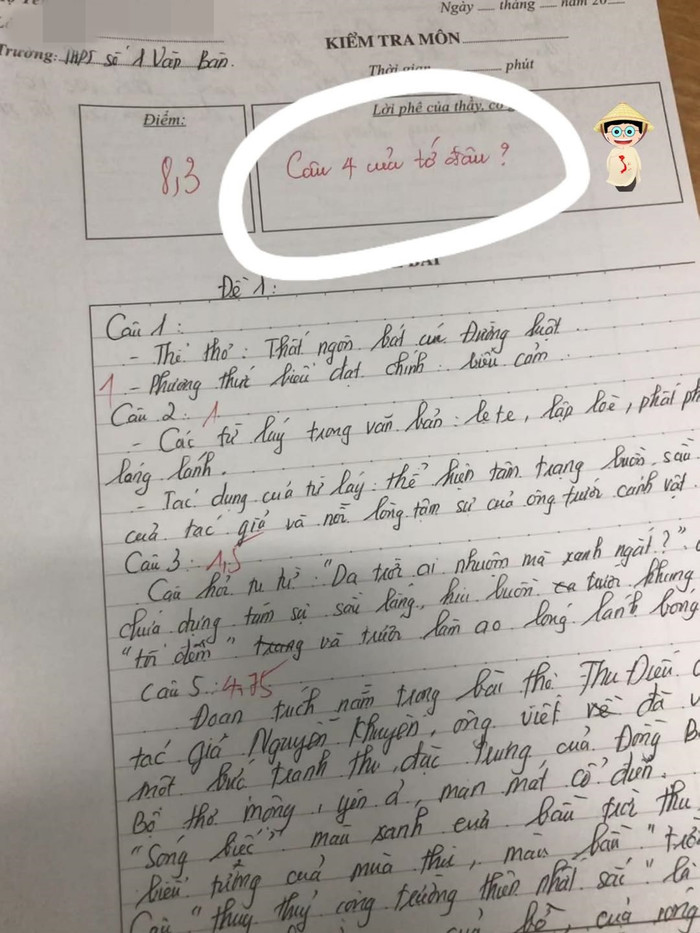 Ngày tháng năm 20
Trường: THPT số 1 Văn Bàn.
KIỂM TRA MÔN
Thời gian phút
Điểm:
Lời phê của thầy, cô
8,3
Câu 4 của tớ đâu?
BÀI
Đề 1:
Câu 1:
- Thể thơ: Thất ngôn bát cú Đường luật.
1 - Phương thức biểu đạt chính: biểu cảm.
Câu 2: 1
- Các từ láy trong văn bản: le te, lập loè, phất ph
lóng lánh.
- Tác dụng của từ láy: thể hiện tâm trạng buồn, sầu
của tác giả và nỗi lòng tâm sự của ông trước cảnh vật.
Câu 3: 1,5
Câu hỏi tu từ: "Da trời ai nhuộm mà xanh ngắt?".
chứa đựng tâm sự sâu lắng, hiu buồn trước khung
"tối đêm" và trước làn ao lóng lánh bóng
Câu 5: 4,75
Đoạn trích nằm trong bài thơ Thu Điếu
tác giả Nguyễn Khuyến, ông viết đã v
một bức tranh thu đặc trưng của Đồng B
Bộ thơ mộng, yên ả, man mát cổ điển.
"Sóng biếc" màu xanh của bầu trời thu
biểu tượng của mùa thu, màu
"thuỷ cộng trường thiên nhất sắc" là
của